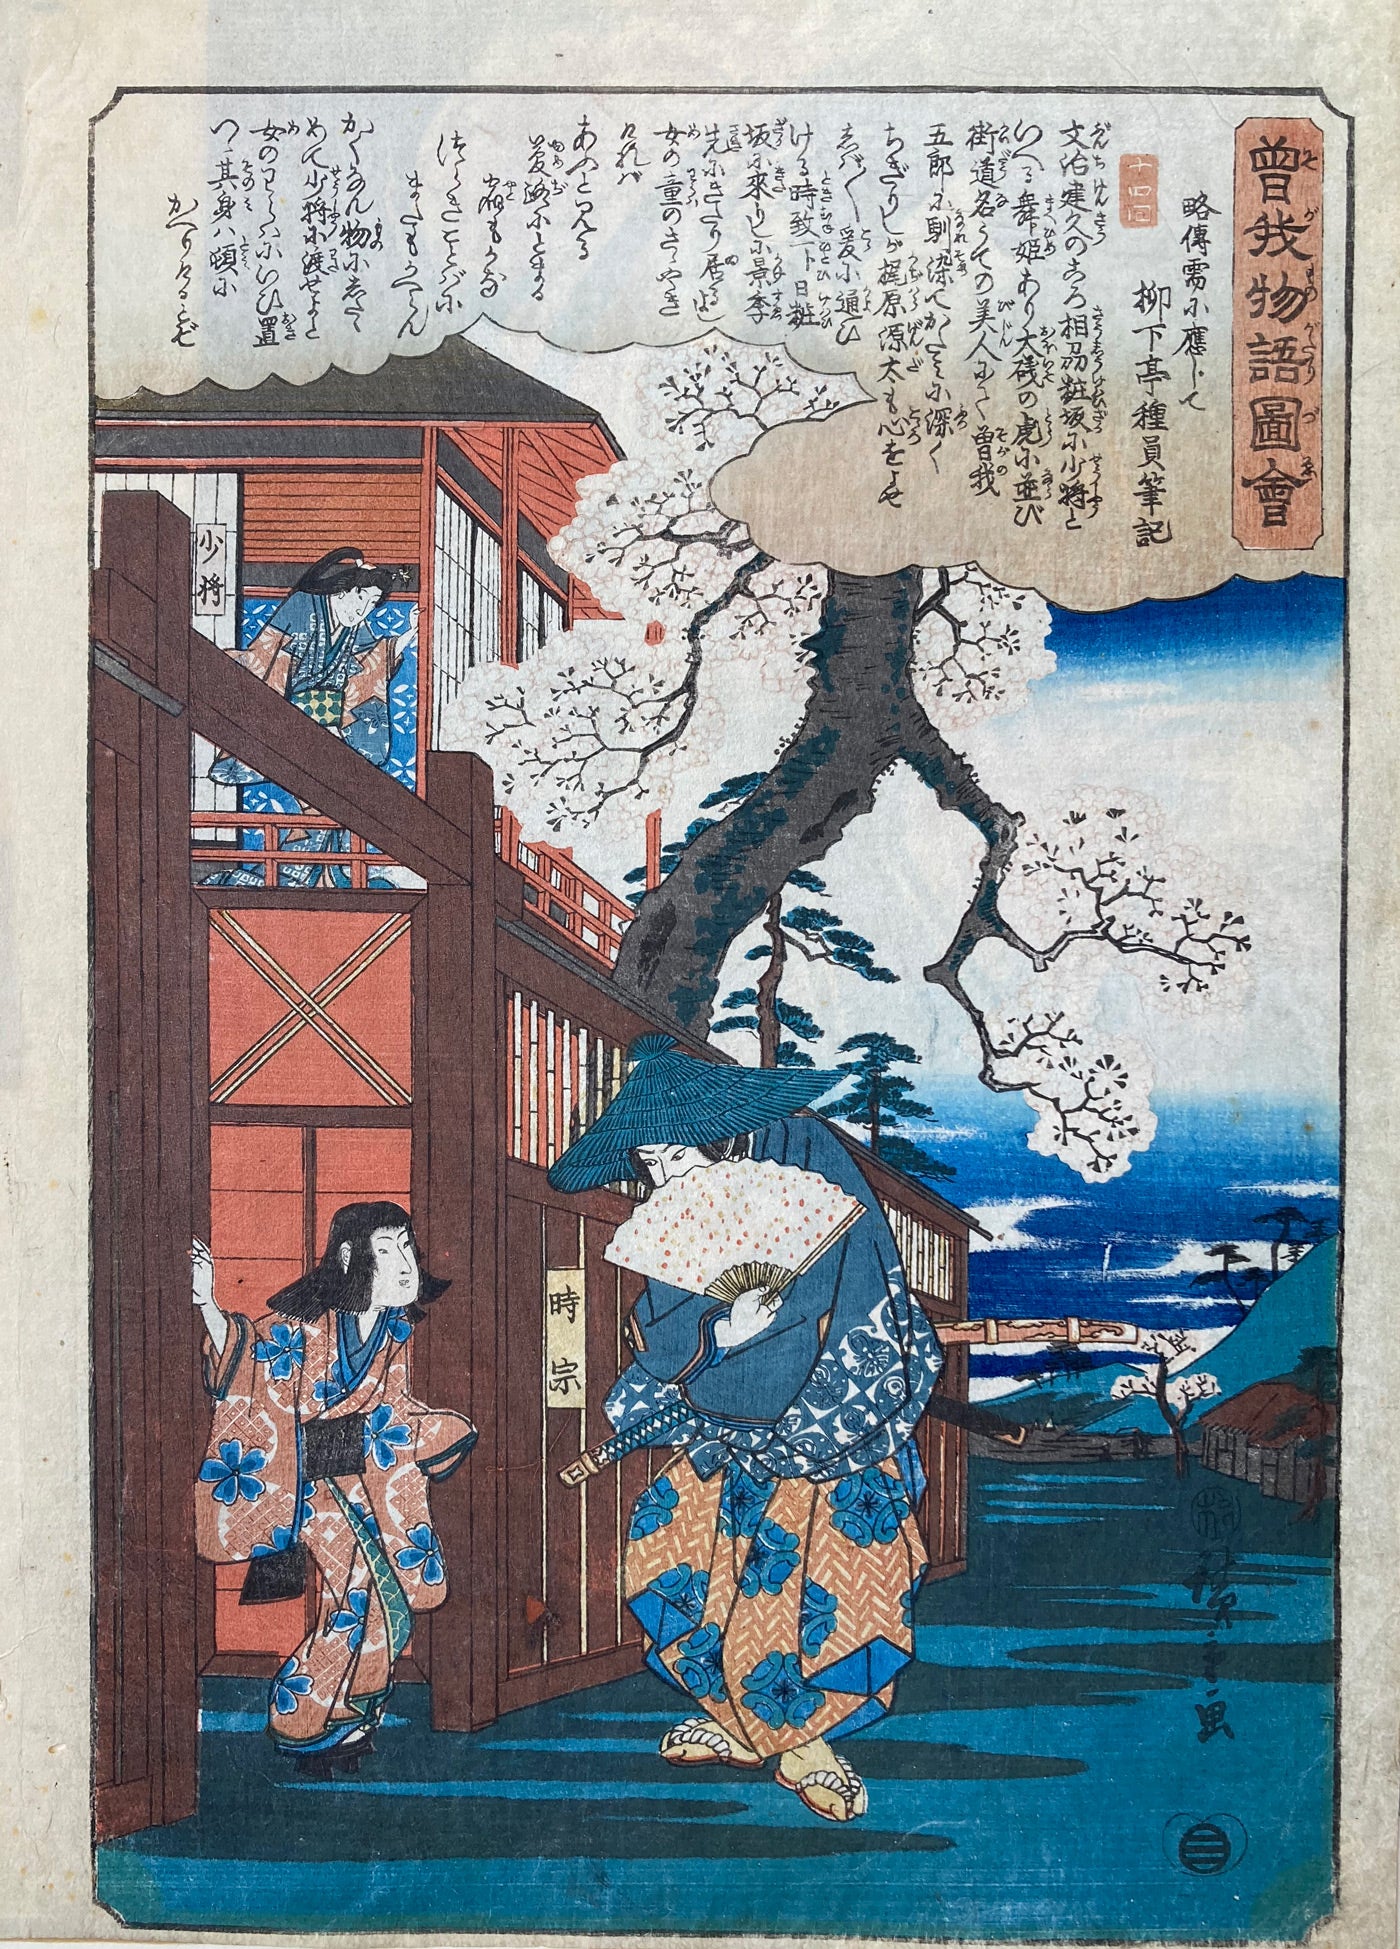 曾我物語圖會
略傳需に應じて
柳下亭種員筆記
十四回
文治建久のころ相刕粧坂に少将と
いへる舞姫あり大磯の虎に並び
街道名うての美人にて曾我
五郎に馴染てかたみに深く
ちぎりしが梶原源太も心をよせ
しば〳〵爰に通ひ
ける時致一日粧
坂に來りしに景季
先にきたり居るよし
女の童のさゝやき
ければ
あふと見る
夢路にとまる
宿もがな
つらきことばに
またもかへらん
かくなん物にしたゝ
めて少将に渡せよと
女のわらはに
いひ置
つゝ其身は頓に
かへりけるとぞ
少将
時宗
廣重画